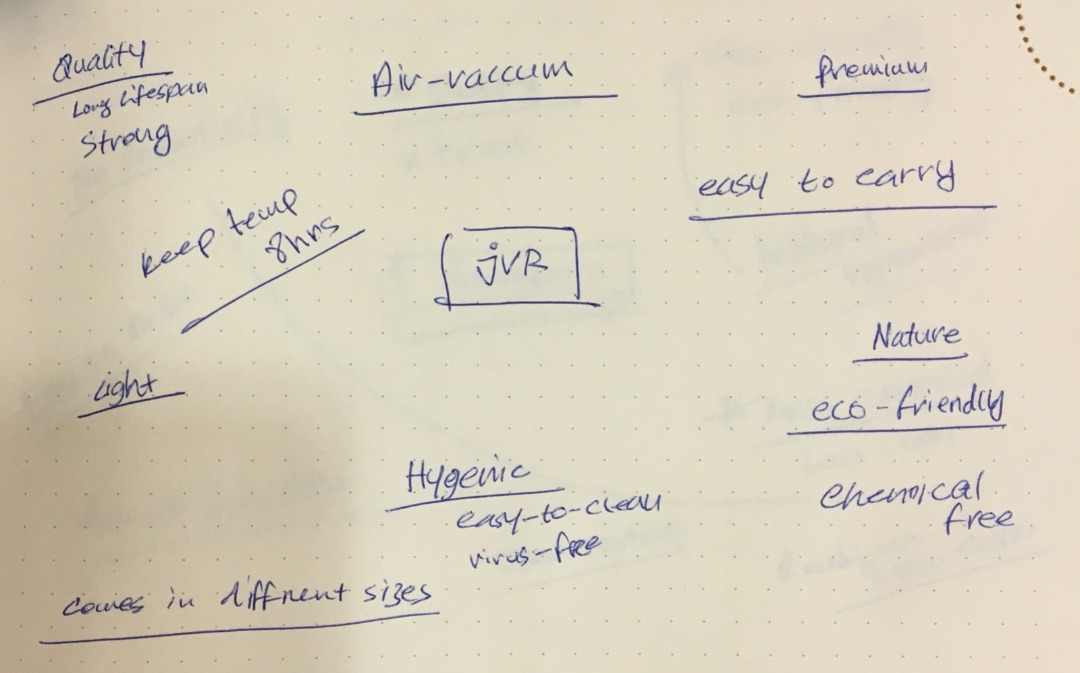 Quality
Long lifespan
Strong
Air-vaccum
Premium
easy to carry
keep temp
8hrs
jVR
Nature
Light
eco-friendly
Hygenic
easy-to-clean
virus-free
chemical
free
comes in diffrent sizes